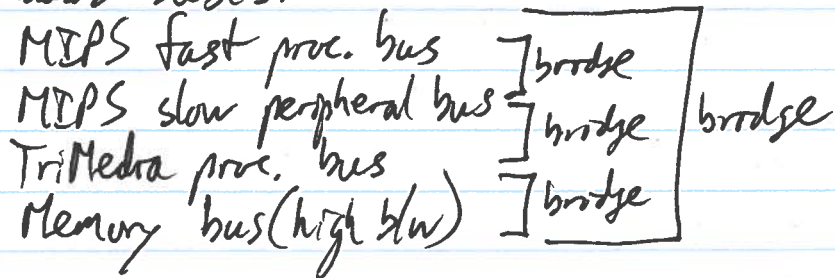 MIPS fast proc. bus
] bridge
MIPS slow peripheral bus
] bridge
] bridge
TriMedia proc. bus
] bridge
Memory bus (high b/w)